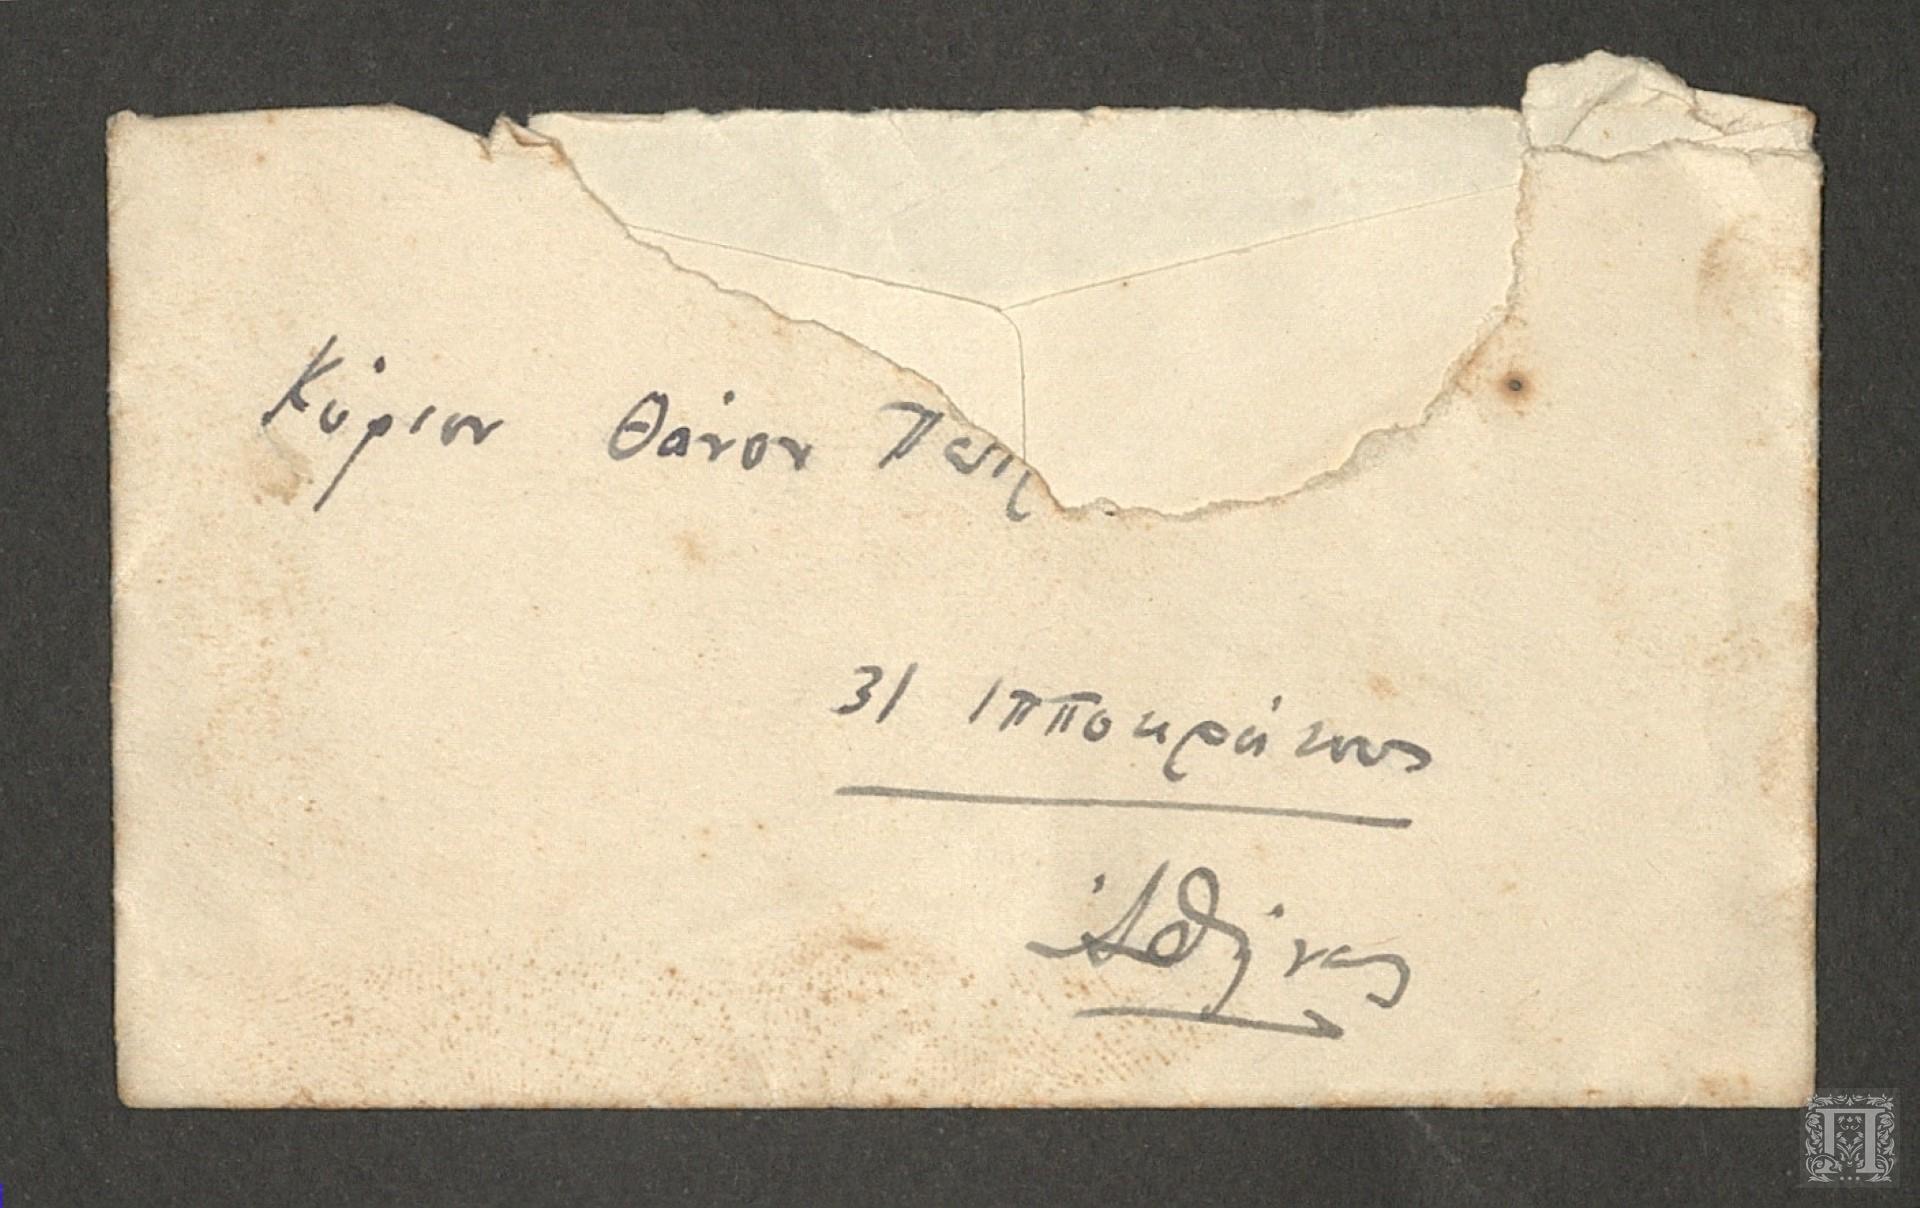 Κύριον Θάνον
31 Ιπποκράτους
Ἀθήνας